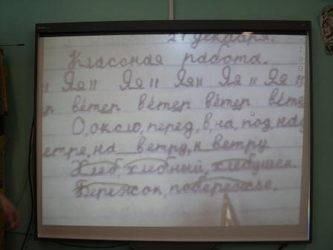 27 декабря.
Классная работа.
" Яя " Яя " Яя " Яя " Яя "
р ветер ветер ветер вете
О, около, перед, в, на, под, над
етре, на ветру, к ветру
Хлеб, хлебный, хлебушек.
Бережок, побережье.